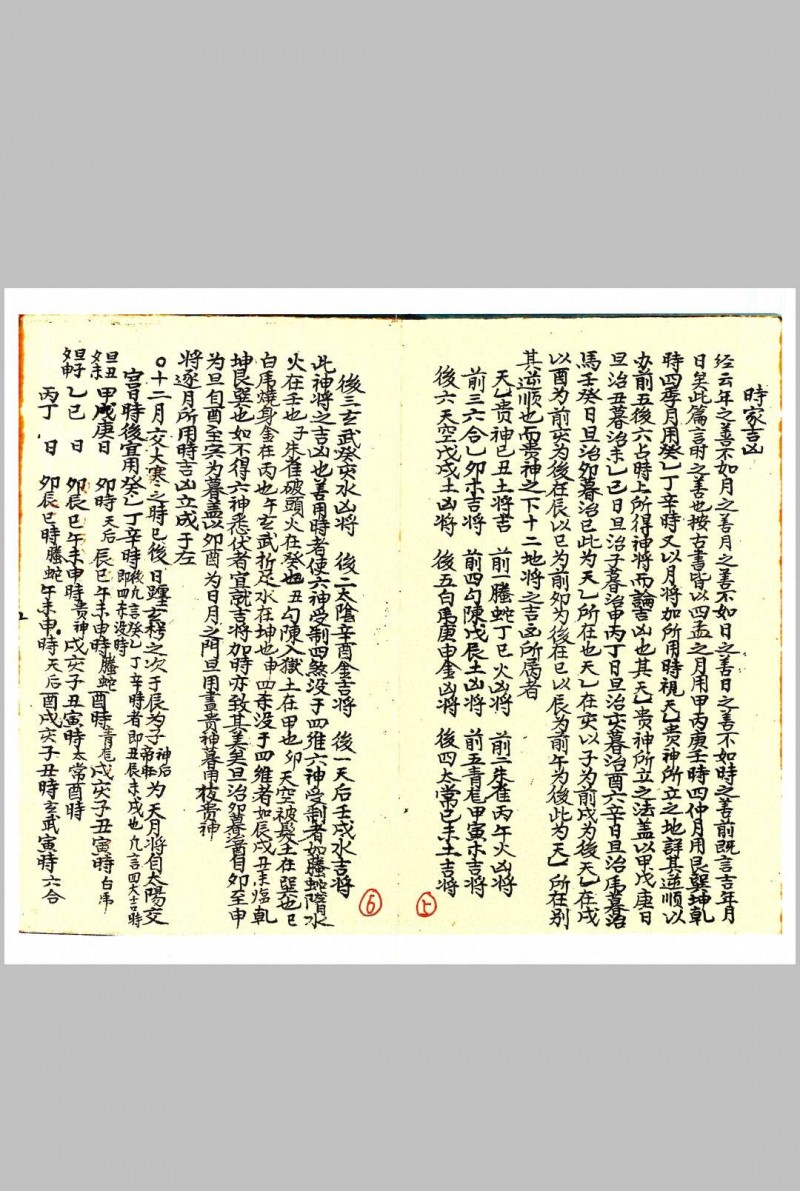 時家吉凶
经云年之善不如月之善月之善不如日之善日之善不如時之善前既言吉年月
日矣此篇言時之善也按古書皆以四孟之月用甲丙庚壬時四仲月用艮巽坤乾
時四季月用癸乙丁辛時又以月将加所用時視天乙贵神所立之地詳其逆順以
办前五後六占時上所得神将而論吉凶也其天乙贵神所立之法盖以甲戊庚日
旦治丑暮治未乙己日旦治子暮治申丙丁日旦治亥暮治酉六辛日旦治馬暮治
馬壬癸日旦治卯暮治巳此为天乙所在也天乙在亥以子为前戌为後天乙在戌
以酉为前亥为後在辰以巳为前卯为後在巳以辰为前午为後此为天乙所在别
其逆順也而贵神之下十二地将之吉凶所属者
天乙贵神己丑土将吉 前一螣蛇丁巳火凶将 前二朱雀丙午火凶将
前三六合乙卯木吉将 前四勾陳戊辰土凶将 前五青龙甲寅木吉将
後六天空戊戌土凶将 後五白虎庚申金凶将 後四太常己未土吉将
後三玄武癸亥水凶将 後二太陰辛酉金吉将 後一天后壬戌水吉将
此神将之吉凶也善用時者使六神受制四煞没于四维六神受制者如螣蛇隋水
火在壬也子朱雀破頭火在癸也丑勾陳入獄土在甲也卯天空被髮土在巽也巳
白虎燒身金在丙也午玄武折足水在坤也申四煞没于四维者如辰戌丑未临乾
坤艮巽也如不得六神悉伏者宜就吉将加時亦致其美矣旦治卯暮治酉自卯至申
为旦自酉至寅为暮盖以卯酉为日月之門旦用晝贵神暮用夜贵神
将逐月所用時吉凶立成于左
○十二月交大寒之時已後日躔玄枵之次于辰为子神后为天月将自太陽交
宫日時後宜用癸乙丁辛時後凢言癸乙丁辛時者即丑辰未戌也凢言四大吉時即四杀没時
旦丑 甲戊庚日 卯時天后 辰巳午未申時螣蛇 酉時青龙 戌亥子丑寅時白虎
旦子夕申 乙己日 卯辰巳午未申時贵神 戌亥子丑寅時太常 酉時
丙丁日 卯辰巳時螣蛇 午未申時天后 酉戌亥子丑時玄武 寅時六合
6
5